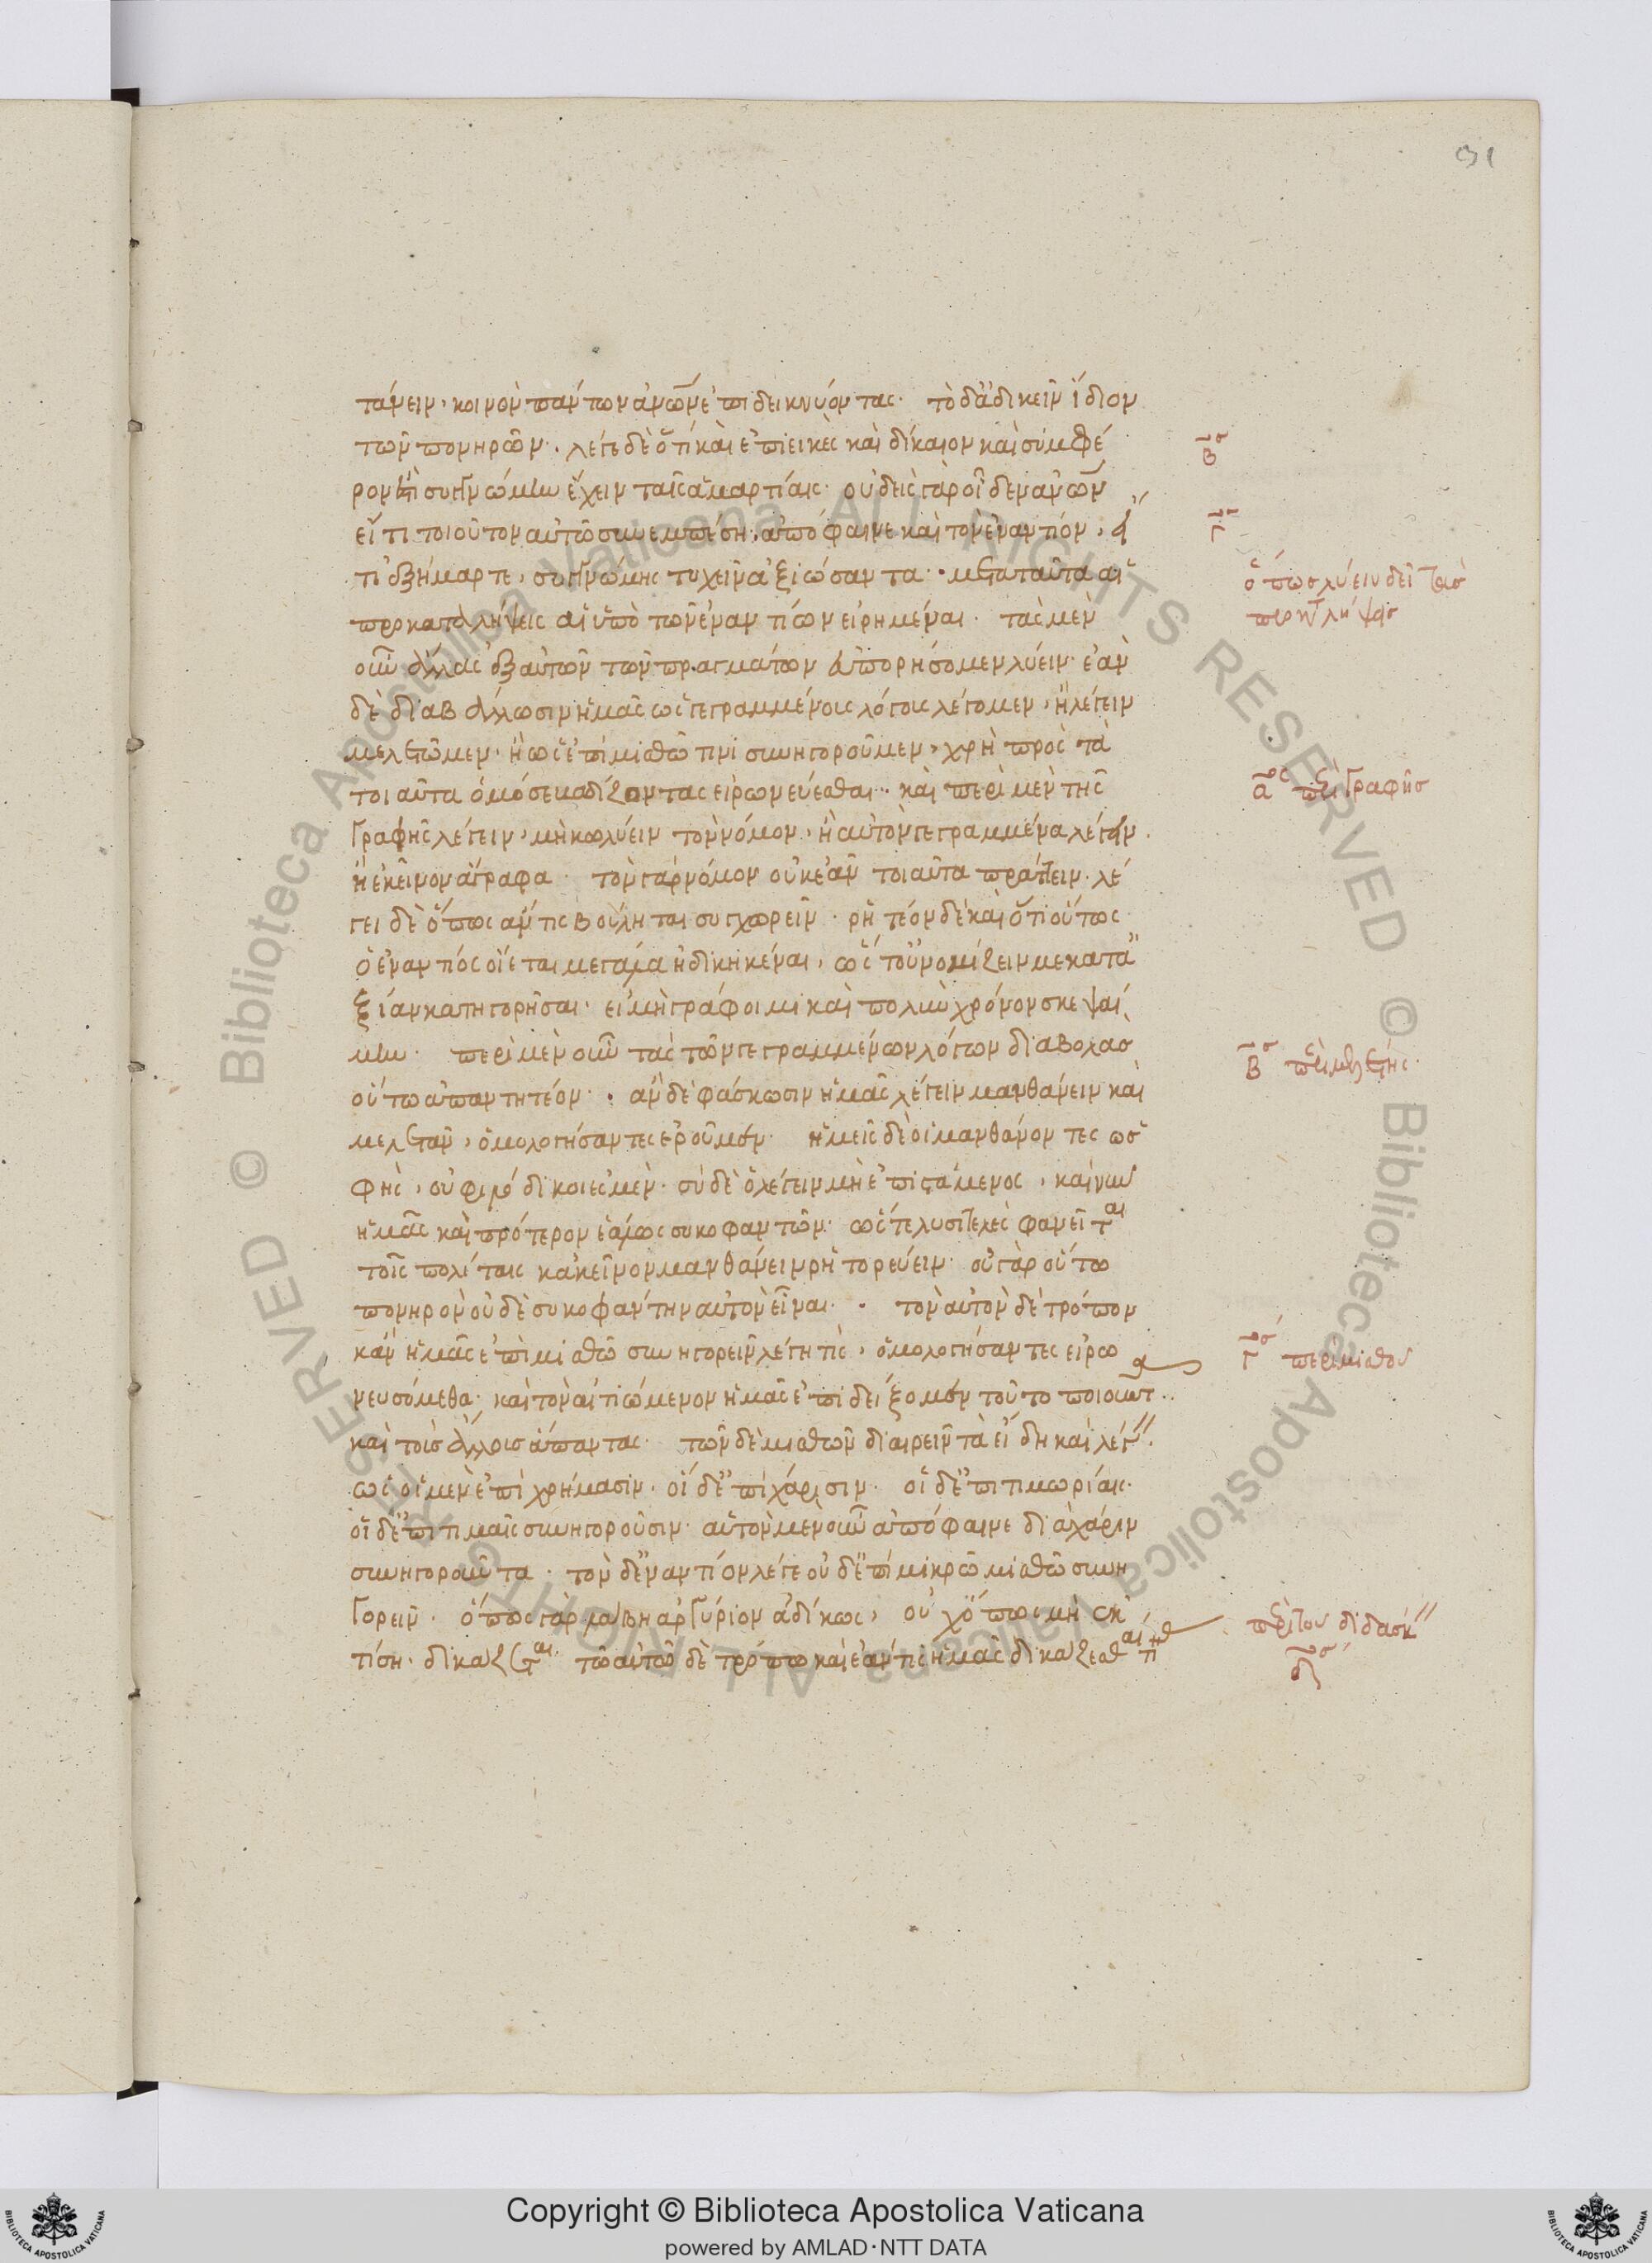 31
τάνειν, κοινὸν πάντων ἀνθρώπων ἐπιδεικνύοντας. τὸ δ' ἀδικεῖν ἴδιον
τῶν πονηρῶν. λέγε δὲ ὅτι καὶ ἐπιεικὲς καὶ δίκαιον καὶ συμφέ
ρον ἐστὶ συγγνώμην ἔχειν ταῖς ἁμαρτίαις. οὐδεὶς γὰρ οἶδεν ἀνθρώπων
εἴ τι τοιοῦτον αὐτῷ συνεμπέσῃ. ἀπόφαινε καὶ τὸν ἐναντίον, εἴ
τι ἐξήμαρτε, συγγνώμης τυχεῖν ἀξιώσαντα. μετὰ ταῦτα αἱ
προκαταλήψεις αἱ ὑπὸ τῶν ἐναντίων εἰρημέναι. τὰς μὲν
οὖν ἄλλας ἐξ αὐτῶν τῶν πραγμάτων εὐπορήσομεν λύειν. ἐὰν
δὲ διαβάλλωσιν ἡμᾶς ὡς γεγραμμένους λόγους λέγομεν, ἢ λέγειν
μελετῶμεν. ἢ ὡς ἐπὶ μισθῷ τινὶ συνηγοροῦμεν, χρὴ πρὸς τὰ
τοιαῦτα ὁμόσε βαδίζοντας εἰρωνεύεσθαι. καὶ περὶ μὲν τῆς
γραφῆς λέγειν, μὴ κωλύειν τὸν νόμον, ἢ αὐτὸν γεγραμμένα λέγειν.
ἢ ἐκεῖνον ἄγραφα. τὸν γὰρ νόμον οὐκ ἐᾶν τοιαῦτα πράττειν. λέ
γει δὲ ὅπως ἄν τις βούληται συγχωρεῖν. ῥητέον δὲ καὶ ὅτι οὕτως
ὁ ἐναντίος οἴεται μεγάλα ἠδικηκέναι, ὥστ' οὐ νομίζειν με κατ' ἀ
ξίαν κατηγορῆσαι. εἰ μὴ γράφοιμι καὶ πολὺν χρόνον σκεψαί
μην. περὶ μὲν οὖν τὰς τῶν γεγραμμένων λόγων διαβολὰς
οὕτω ἀπαντητέον. ἂν δὲ φάσκωσιν ἡμᾶς λέγειν μανθάνειν καὶ
μελετᾶν, ὁμολογήσαντες ἐροῦμεν. ἡμεῖς δὲ οἱ μανθάνοντες ὡς
φῄς, οὐ φιλόδικοί ἐσμεν. σὺ δὲ ὁ λέγειν μὴ ἐπιστάμενος, καὶ νῦν
ἡμᾶς καὶ πρότερον ἑάλως συκοφαντῶν. ὥστε λυσιτελὲς φανεῖται
τοῖς πολίταις κἀκεῖνον μανθάνειν ῥητορεύειν. οὐ γὰρ οὕτω
πονηρὸν οὐδὲ συκοφάντην αὐτὸν εἶναι. τὸν αὐτὸν δὲ τρόπον
κἂν ἡμᾶς ἐπὶ μισθῷ συνηγορεῖν λέγῃ τις, ὁμολογήσαντες εἰρω
νευσόμεθα. καὶ τὸν αἰτιώμενον ἡμᾶς ἐπιδείξομεν τοῦτο ποιοῦντα
καὶ τοὺς ἄλλους ἅπαντας. τῶν δὲ μισθῶν διαιρεῖν τὰ εἴδη καὶ λέγ
ὡς οἱ μὲν ἐπὶ χρήμασιν. οἱ δ' ἐπὶ χάρισιν. οἱ δ' ἐπὶ τιμωρίαις.
οἱ δ' ἐπὶ τιμαῖς συνηγοροῦσιν. αὑτὸν μὲν οὖν ἀπόφαινε διὰ χάριν
συνηγοροῦντα. τὸν δ' ἐναντίον λέγε οὐδ' ἐπὶ μικρῷ μισθῷ συνη
γορεῖν. ὅπως γὰρ λάβῃ ἀργύριον ἀδίκως, οὐχ ὅπως μὴ ἐκ
τίσῃ. δικάζεται. τῷ αὐτῷ δὲ τρόπῳ καὶ ἐάν τις ἡμᾶς δικάζεσθαί τι
β^ον
γ^ον
ὅπως λύειν δεῖ τὰς
προκαταλήψεις
α^ον περὶ γραφῆς
β^ον περὶ μελέτης.
γ^ον περὶ μισθοῦ
περὶ τοῦ διδάσκ
δ^ον
Copyright © Biblioteca Apostolica Vaticana
powered by AMLAD·NTT DATA
© Biblioteca Apostolica Vaticana ALL RIGHTS RESERVED
© Biblioteca Apostolica Vaticana ALL RIGHTS RESERVED